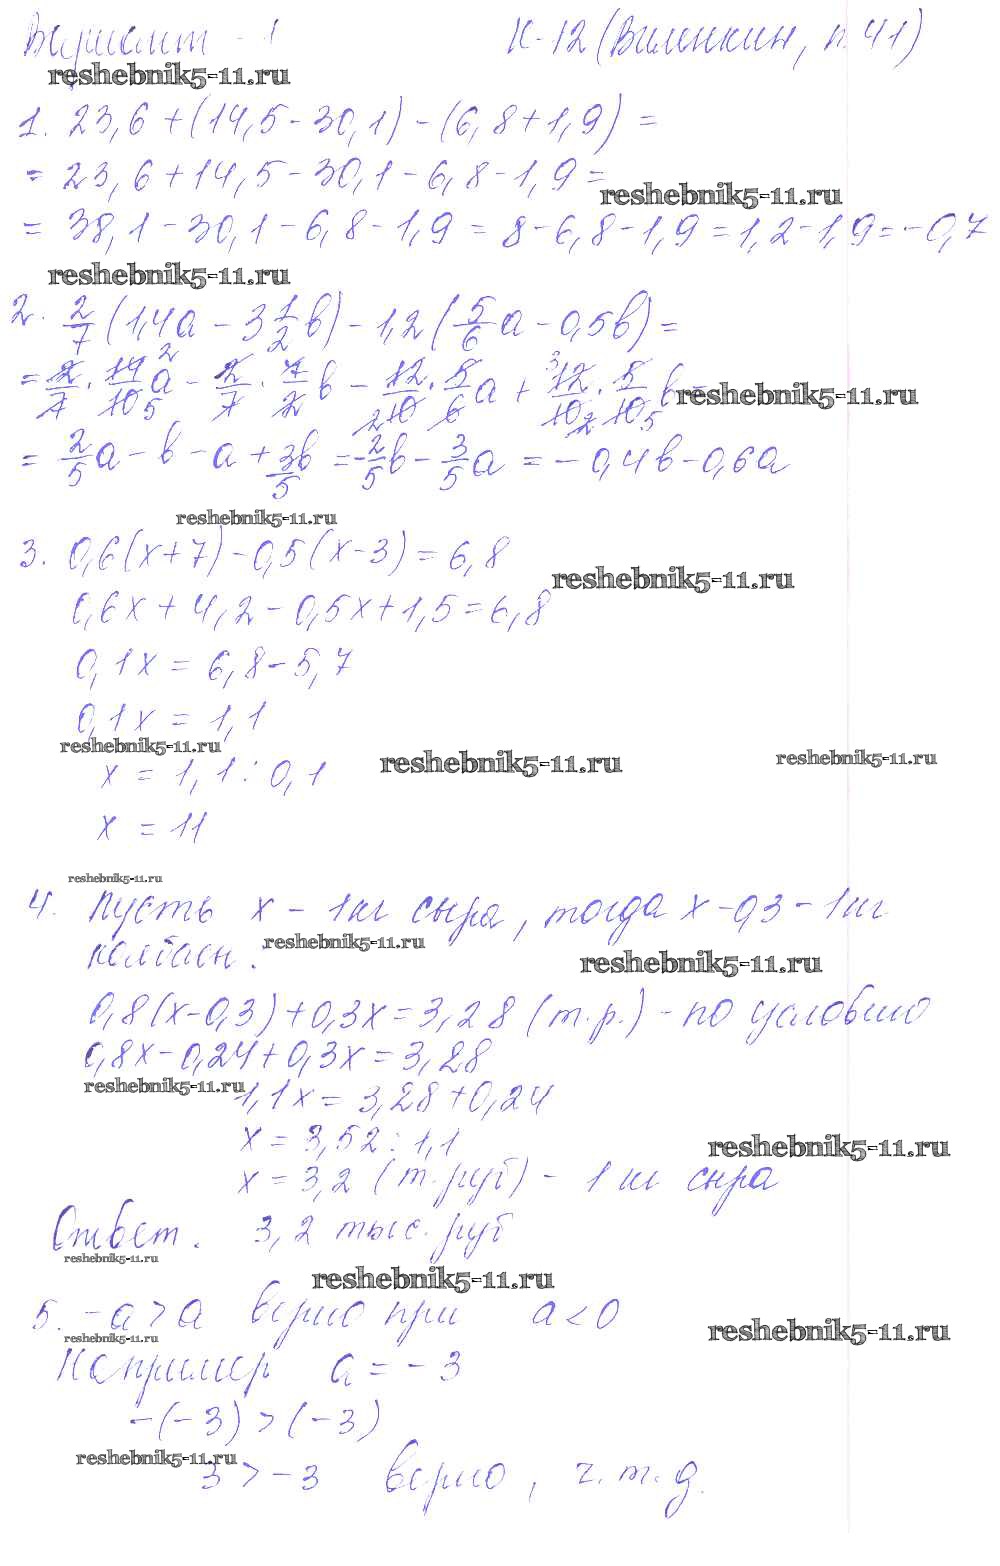 Вариант - 1 К-12 (Виленкин, п. 41)
reshebnik5-11.ru
1. 23,6 + (14,5 - 30,1) - (6,8 + 1,9) =
= 23,6 + 14,5 - 30,1 - 6,8 - 1,9 =
reshebnik5-11.ru
= 38,1 - 30,1 - 6,8 - 1,9 = 8 - 6,8 - 1,9 = 1,2 - 1,9 = -0,7
reshebnik5-11.ru
2. 2/7 (1,4a - 3 1/2 b) - 1,2 (5/6 a - 0,5b) =
= 2/7 · 14/10 a - 2/7 · 7/2 b - 12/10 · 5/6 a + 12/10 · 5/10 b =
reshebnik5-11.ru
= 2/5 a - b - a + 3b/5 = -2/5 b - 3/5 a = -0,4b - 0,6a
reshebnik5-11.ru
3. 0,6(x + 7) - 0,5(x - 3) = 6,8
reshebnik5-11.ru
0,6x + 4,2 - 0,5x + 1,5 = 6,8
0,1x = 6,8 - 5,7
0,1x = 1,1
reshebnik5-11.ru
reshebnik5-11.ru
reshebnik5-11.ru
x = 1,1 : 0,1
x = 11
reshebnik5-11.ru
4. Пусть x - 1кг сыра, тогда x - 0,3 - 1кг
колбасы:
reshebnik5-11.ru
reshebnik5-11.ru
0,8(x - 0,3) + 0,3x = 3,28 (т.р.) - по условию
0,8x - 0,24 + 0,3x = 3,28
reshebnik5-11.ru
1,1x = 3,28 + 0,24
x = 3,52 : 1,1
reshebnik5-11.ru
x = 3,2 (т. руб) - 1 кг сыра
Ответ. 3,2 тыс. руб
reshebnik5-11.ru
reshebnik5-11.ru
5. -a > a верно при a < 0
reshebnik5-11.ru
reshebnik5-11.ru
Например a = -3
-(-3) > (-3)
reshebnik5-11.ru
3 > -3 верно, ч.т.д.